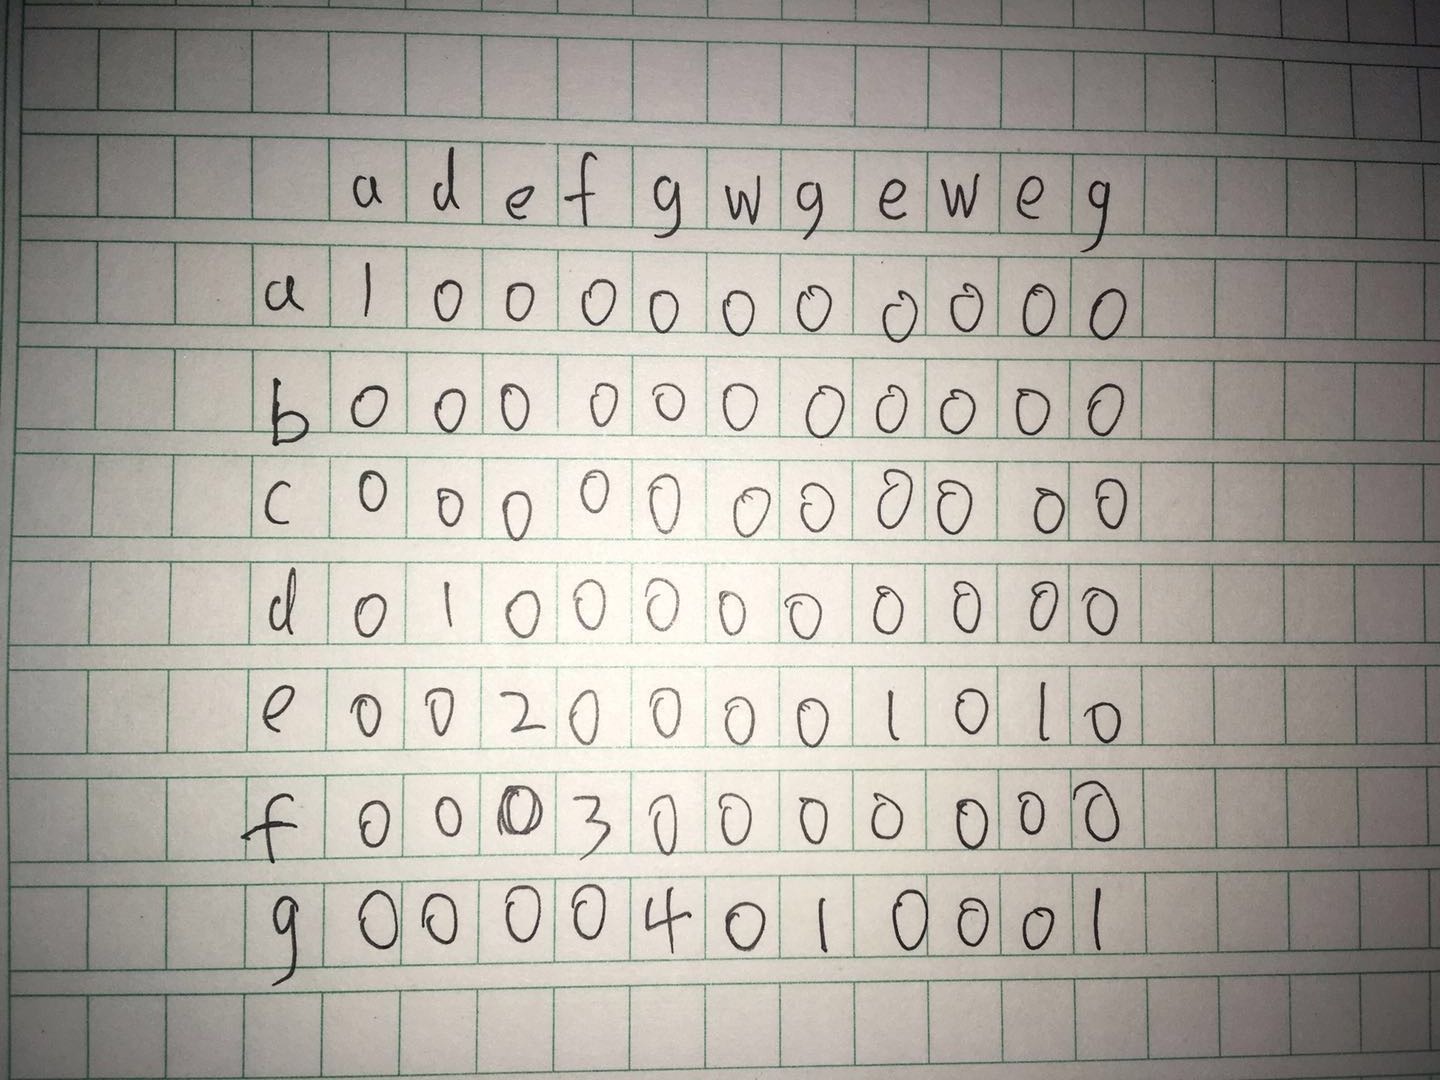 a d e f g w g e w e g
a 1 0 0 0 0 0 0 0 0 0 0
b 0 0 0 0 0 0 0 0 0 0 0
c 0 0 0 0 0 0 0 0 0 0 0
d 0 1 0 0 0 0 0 0 0 0 0
e 0 0 2 0 0 0 0 1 0 1 0
f 0 0 0 3 0 0 0 0 0 0 0
g 0 0 0 0 4 0 1 0 0 0 1